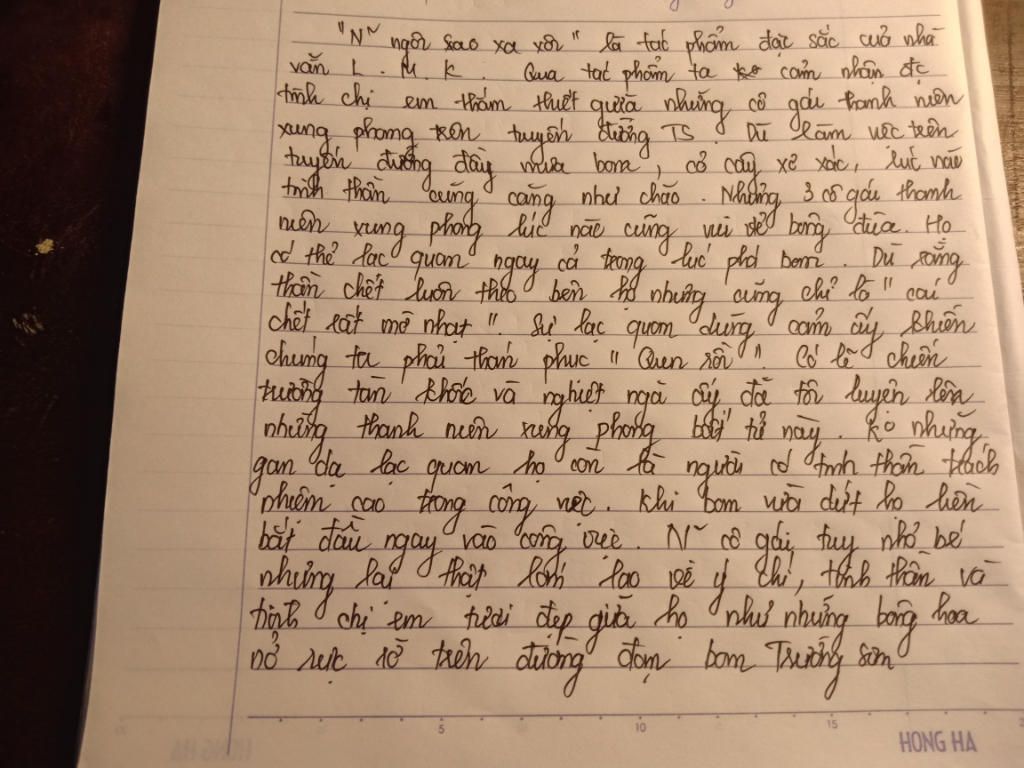 "N~ ngôi sao xa xôi" là tác phẩm đặc sắc của nhà
văn L.M.K. Qua tác phẩm ta cảm nhận đc
tình chị em thắm thiết giữa những cô gái thanh niên
xung phong trên tuyến đường TS. Dù làm việc trên
tuyến đường đầy mưa bom, cỏ cây xơ xác, lúc nào
tinh thần cũng căng như chão. Nhưng 3 cô gái thanh
niên xung phong lúc nào cũng vui vẻ bông đùa. Họ
có thể lạc quan ngay cả trong lúc phá bom. Dù rằng
thần chết luôn theo bên họ nhưng cũng chỉ là "cái
chết rất mờ nhạt". Sự lạc quan dũng cảm ấy khiến
chúng ta phải thán phục "Quen rồi". Có lẽ chiến
trường tàn khốc và nghiệt ngã ấy đã tôi luyện lên
những thanh niên xung phong bất tử này. Ko những
gan dạ lạc quan họ còn là người có tinh thần trách
nhiệm cao trong công việc. Khi bom vừa dứt họ liền
bắt đầu ngay vào công việc. N~ cô gái tuy nhỏ bé
nhưng lại thật lớn lao về ý chí, tinh thần và
tình chị em tươi đẹp giữa họ như những bông hoa
nở rực rỡ trên đường đạn bom Trường Sơn
5 10 15
HONG HA